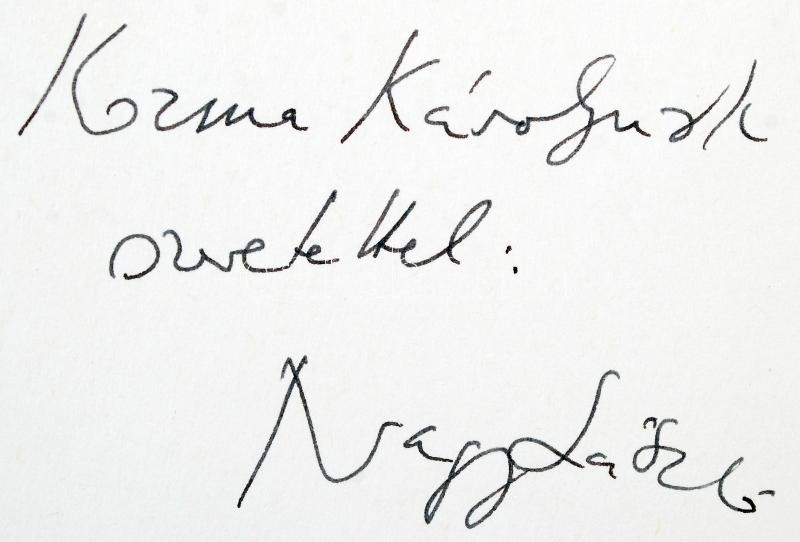 Kozma Károlynak
szeretettel:
Nagy László